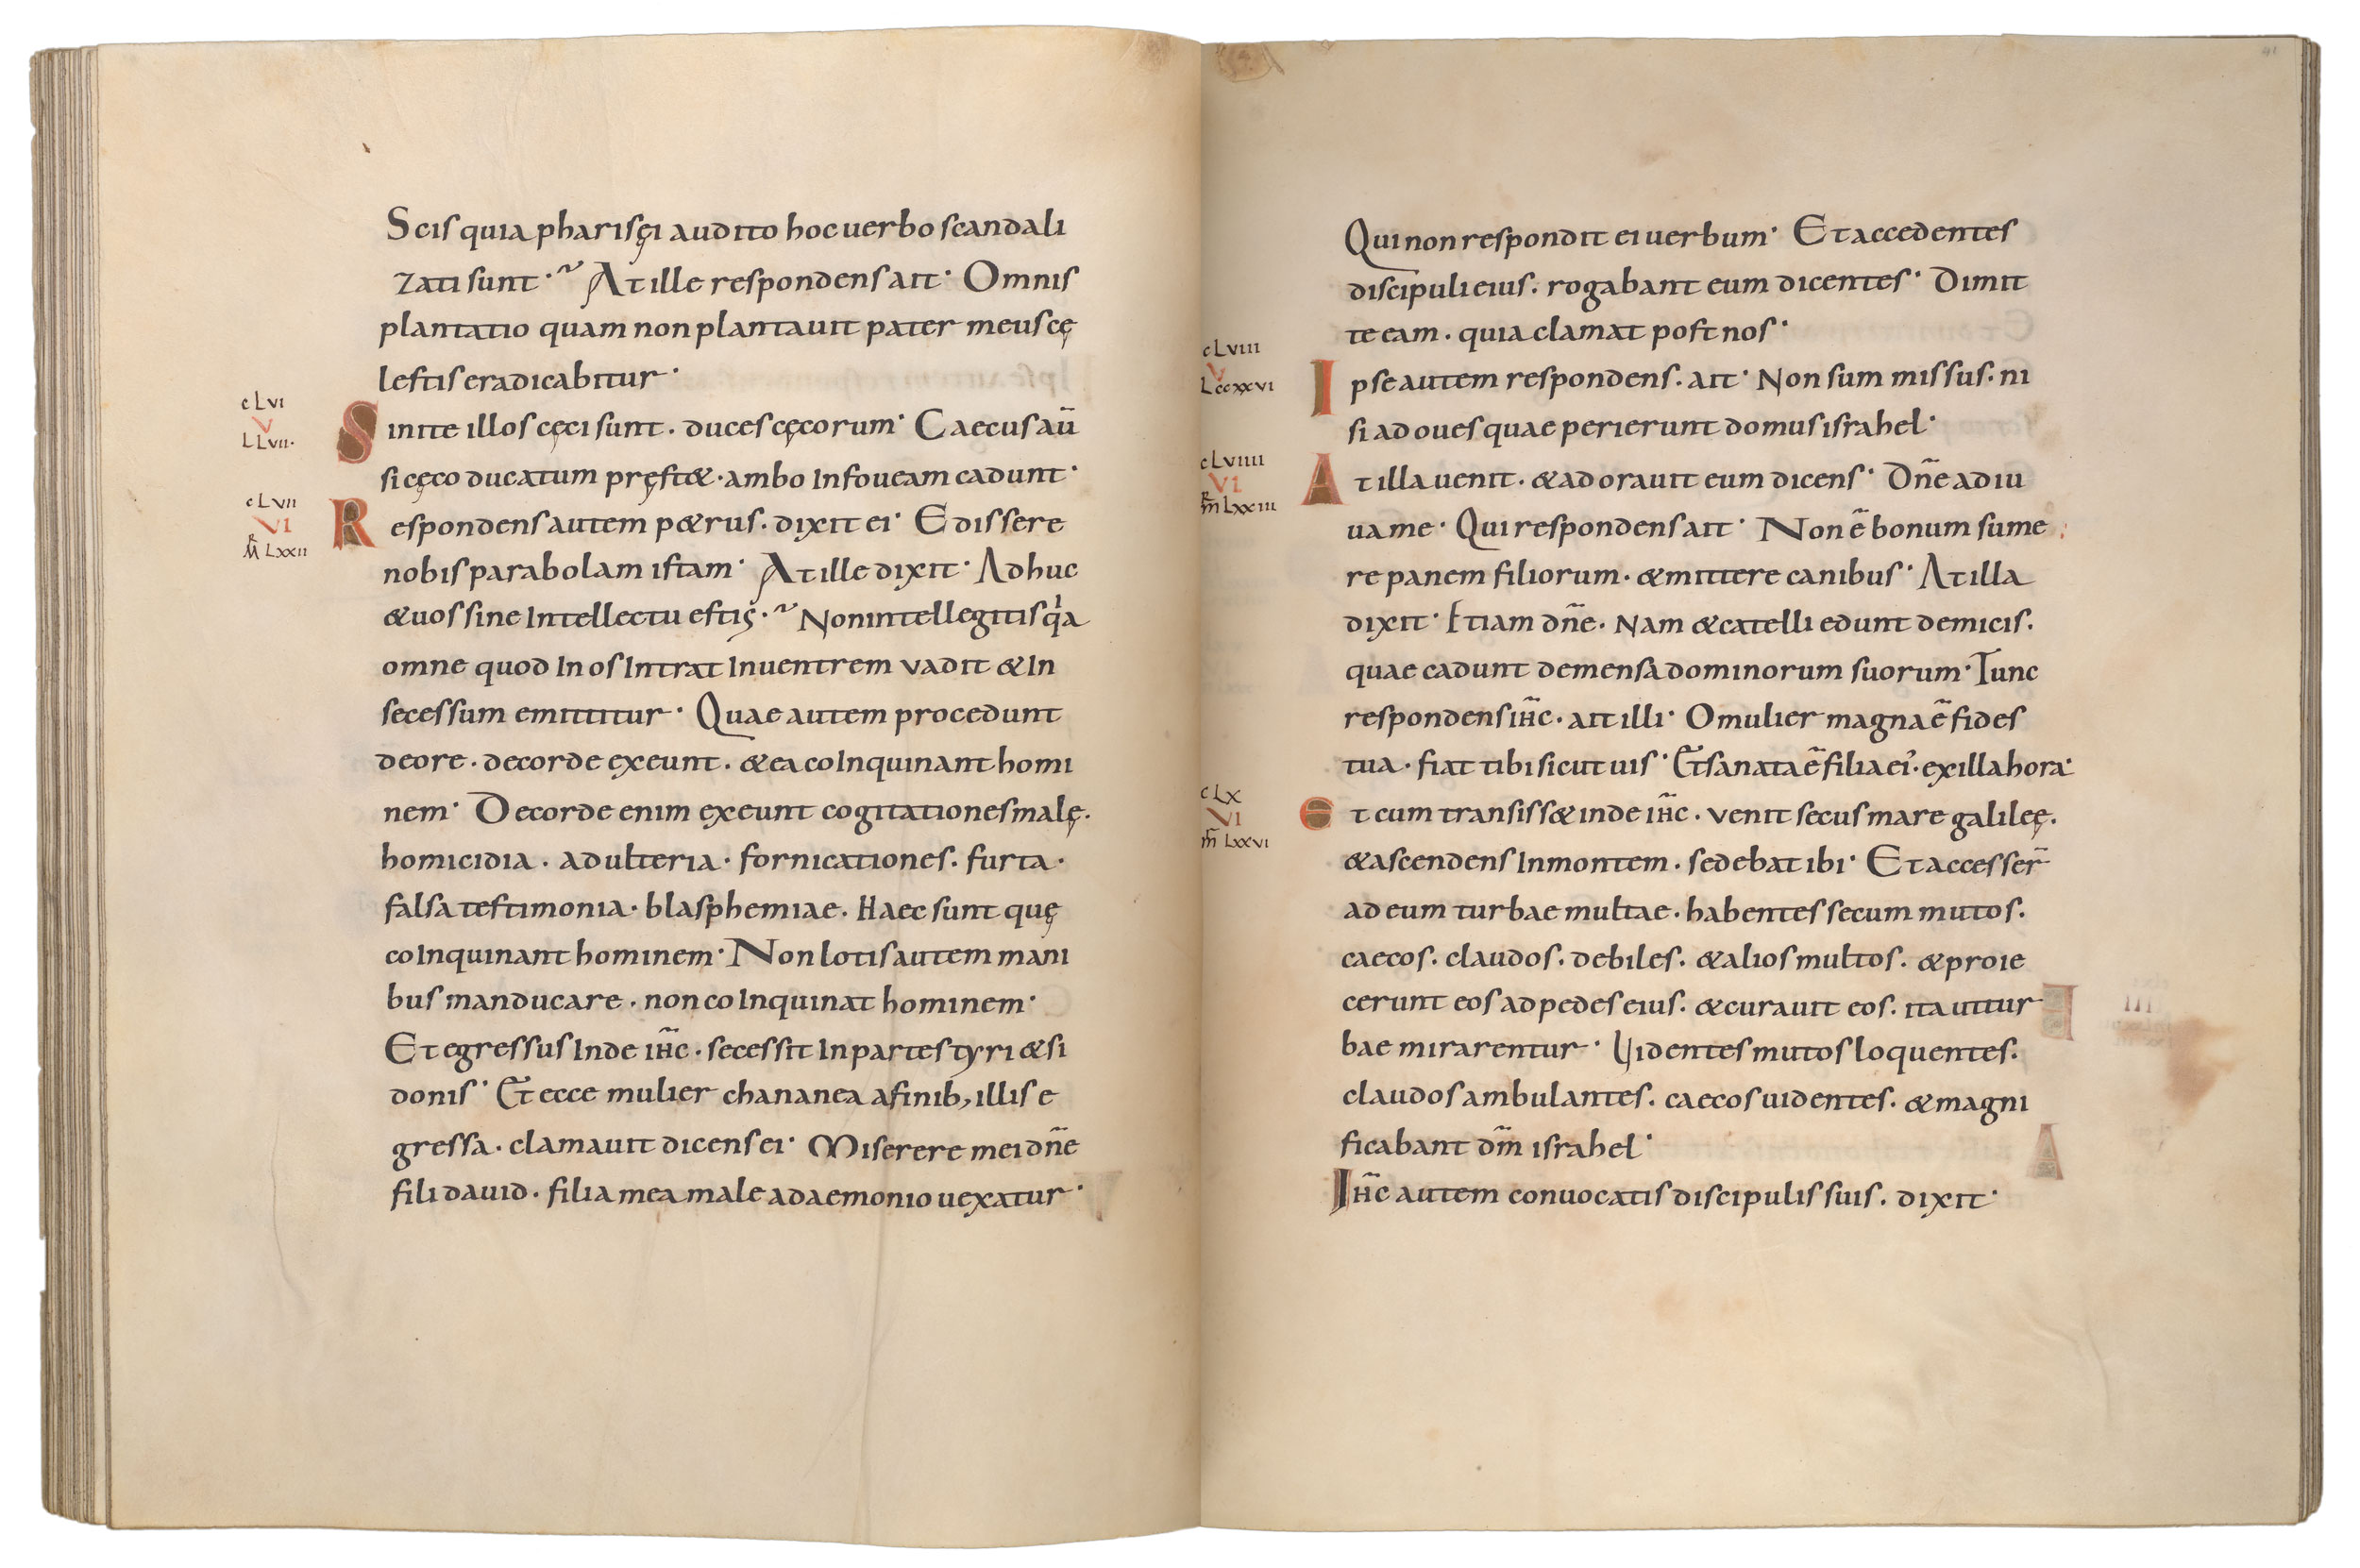 Scis quia pharisęi audito hoc uerbo scandali
zati sunt· At ille respondens ait· Omnis
plantatio quam non plantauit pater meus cę
lestis eradicabitur·
cLVI
V
LLVII·
Sinite illos cęci sunt. duces cęcorum· Caecus aū
si cęco ducatum pręst&· ambo In foueam cadunt·
cLVII
VI
M̄R LXXII
Respondens autem p&rus. dixit ei· Edissere
nobis parabolam istam· At ille dixit· Adhuc
& uos sine Intellectu estis· Non intellegitis qia
omne quod In os Intrat In uentrem vadit & In
secessum emittitur· Quae autem procedunt
de ore. de corde exeunt. & ea coInquinant homi
nem· De corde enim exeunt cogitationes malę.
homicidia. adulteria. fornicationes. furta.
falsa testimonia. blasphemiae. Haec sunt quę
coInquinant hominem· Non lotis autem mani
bus manducare. non coInquinat hominem·
Et egressus Inde ih̄c. secessit In partes tyri & si
donis· Et ecce mulier chananea a finib; illis e
gressa. clamauit dicens ei· Miserere mei dn̄e
fili dauid. filia mea male a daemonio uexatur·
Qui non respondit ei uerbum· Et accedentes
discipuli eius. rogabant eum dicentes· Dimit
te eam. quia clamat post nos·
cLVIII
V
LccxxVI
Ipse autem respondens. ait· Non sum missus. ni
si ad oues quae perierunt domus israhel·
cLVIIII
VI
m̄R LXXIII
At illa uenit. & adorauit eum dicens· Dn̄e adiu
ua me· Qui respondens ait· Non ē bonum sume
re panem filiorum. & mittere canibus· At illa
dixit· Etiam dn̄e. Nam & catelli edunt de micis.
quae cadunt de mensa dominorum suorum· Tunc
respondens ih̄c. ait illi· O mulier magna ē fides
tua. fiat tibi sicut uis· Et sanata ē filia ei'. ex illa hora·
cLX
VI
m̄ LXXVI
Et cum transiss& inde ih̄c. venit secus mare galileę.
& ascendens In montem. sedebat ibi· Et accesser̄
ad eum turbae multae. habentes secum mutos.
caecos. claudos. debiles. & alios multos. & proie
cerunt eos ad pedes eius. & curauit eos. ita ut tur
bae mirarentur· Uidentes mutos loquentes.
claudos ambulantes. caecos uidentes. & magni
ficabant dm̄ israhel·
Ih̄c autem conuocatis discipulis suis. dixit·